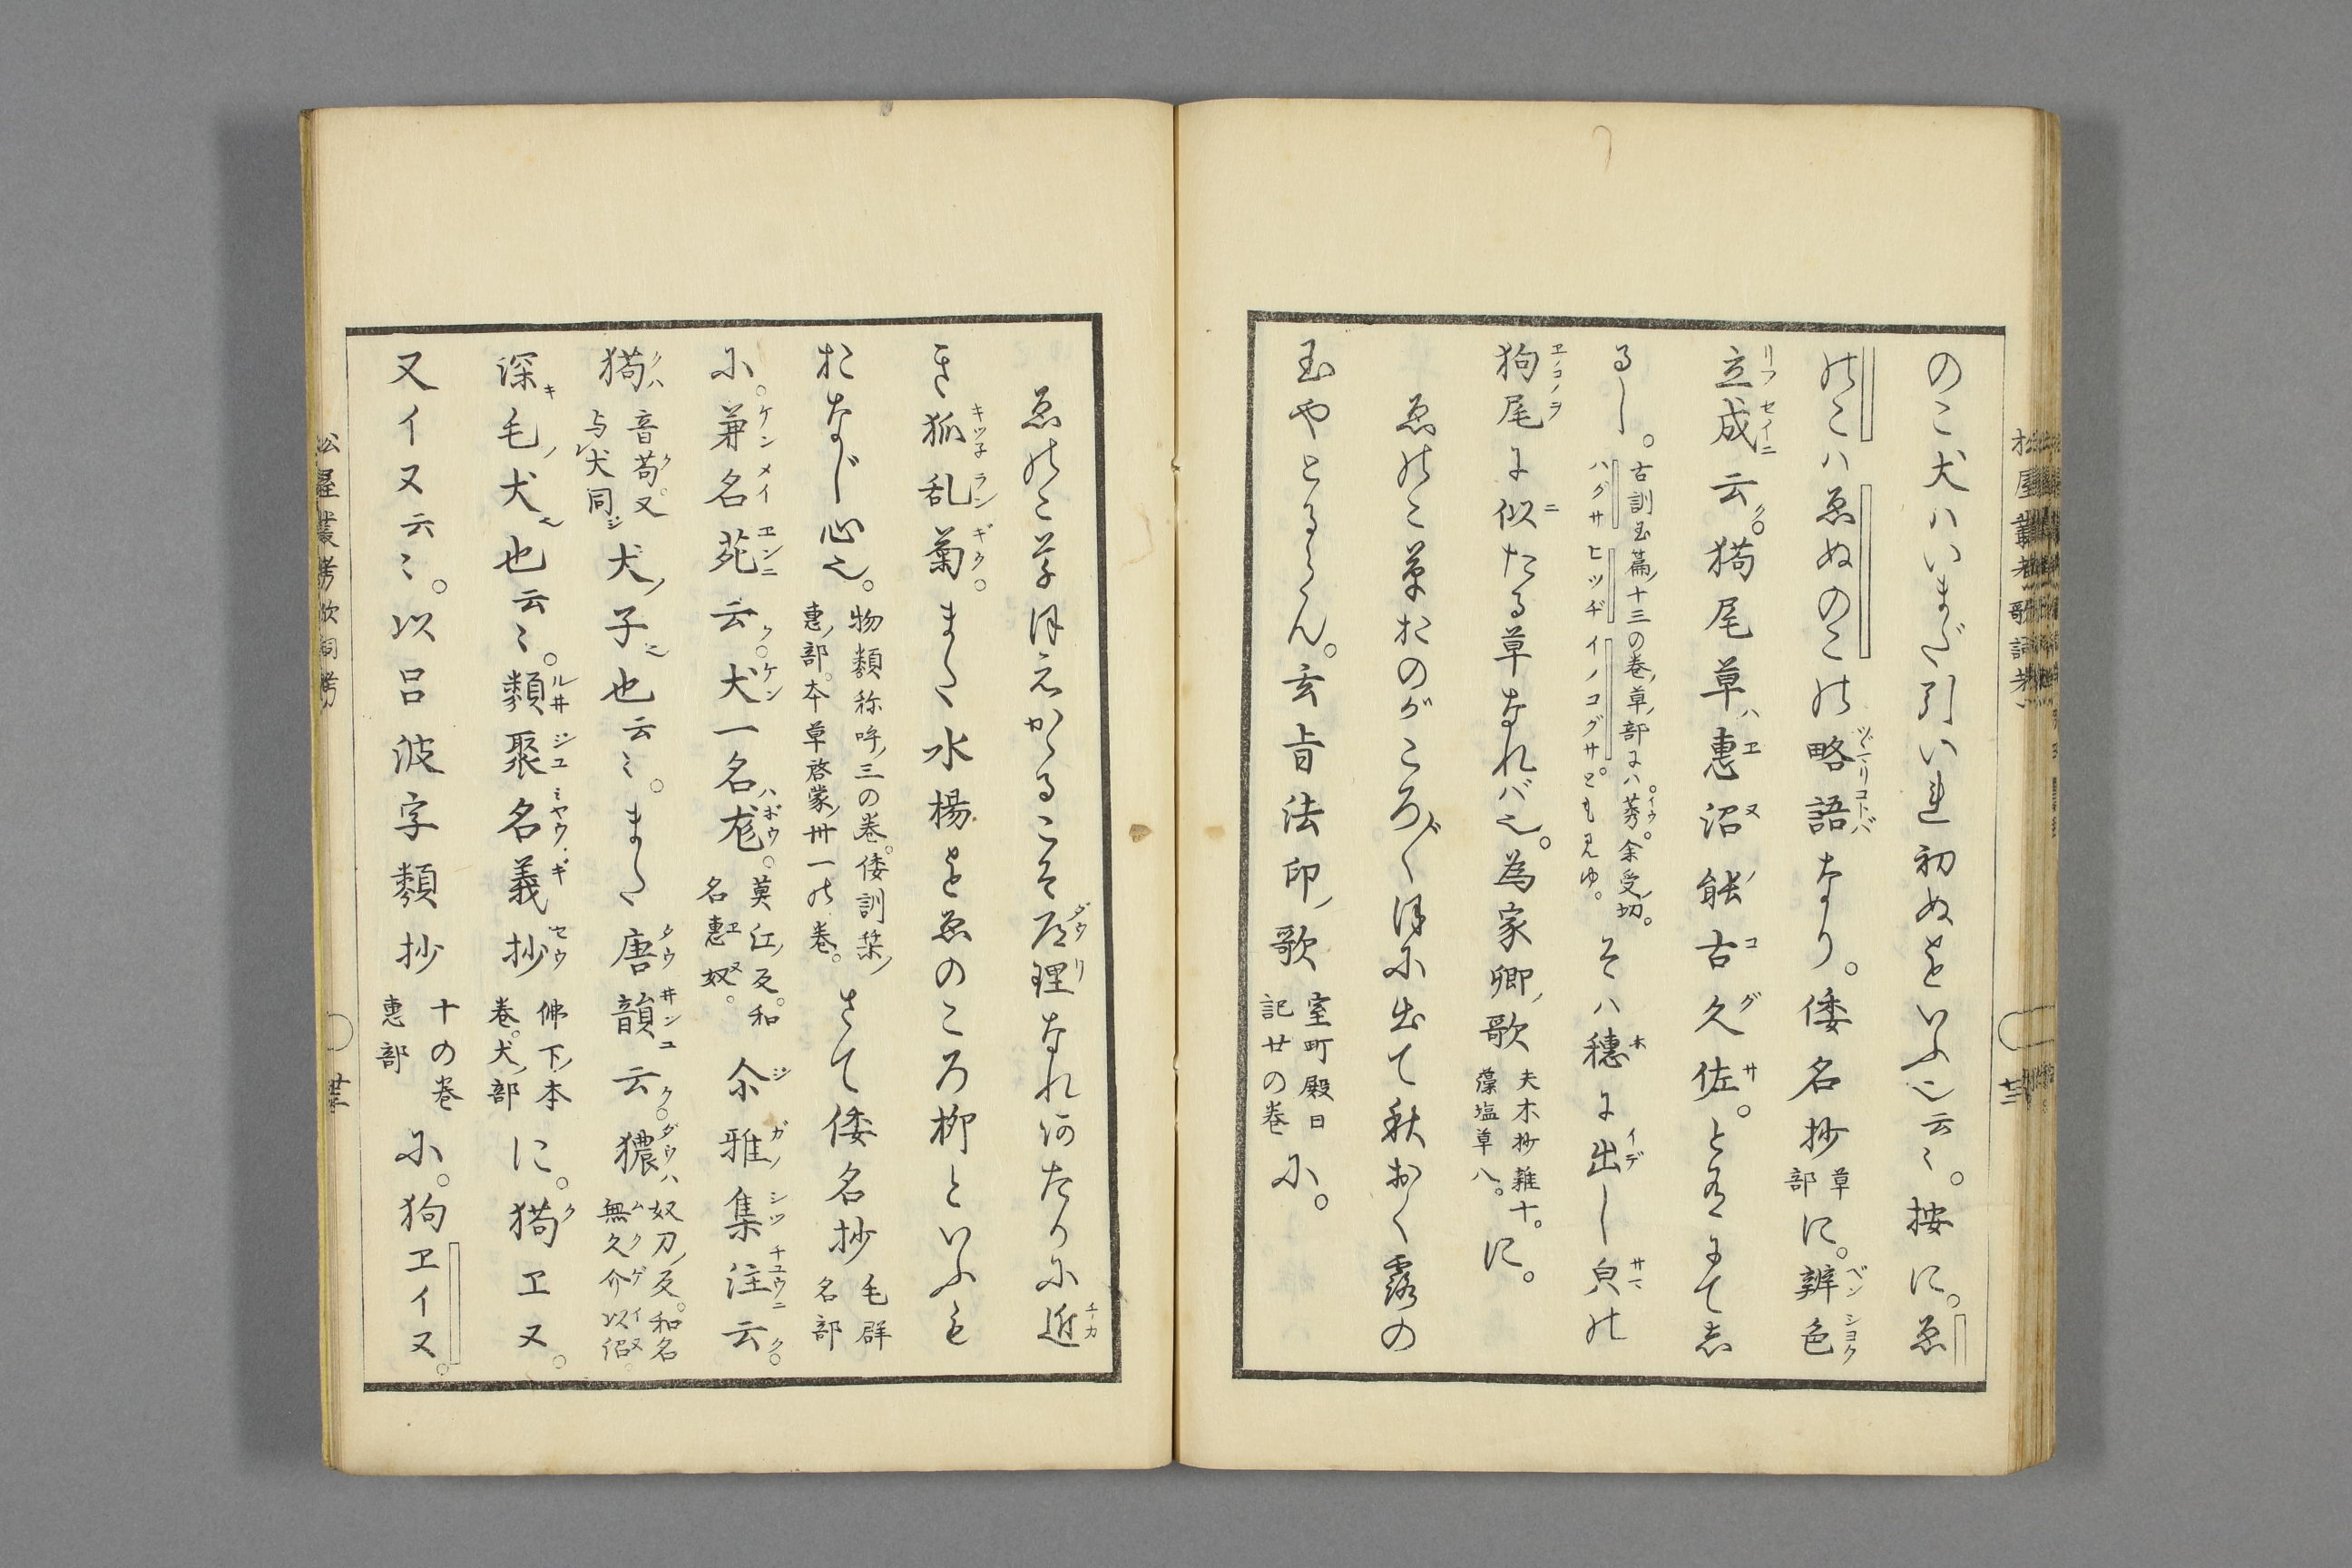 のこ犬ハいまだ引いれ初ぬをといふ也云々。按に。ゑ
のこハゑぬのこの略語なり。倭名抄草部に。辨色
立成云。㺃尾草ハ惠沼能古久佐。とあるにて志
るし。古訓玉篇十三の巻草部にハ莠。余受切。
ハグサヒツヂイノコグサ。とも見ゆ。そハ穗に出し㒵の
狗尾に似たる草なれバ也。為家卿ノ歌夫木抄雜十。藻塩草八。に。
ゑのこ草おのがころ〴〵ほに出て秋おく露の
玉やとるらん。玄旨法印ノ歌室町殿日記廿の巻に。
ゑのこ草ほえかゝるこそ道理なれあたりに近
き狐乱菊。また水楊をゑのころ柳といふも
おなじ心也。物類称呼ノ三の巻。倭訓栞ノ惠ノ部。本草啓蒙ノ卅一の巻。さて倭名抄毛群名部
に。兼名苑云。犬一名尨。莫江ノ反。和名惠奴。尒雅集注云。
㺃音苟。又与犬同犬ノ子也云々。また唐韻云。獳ハ奴刀ノ反。和名無久介以沼。
深毛ノ犬也云々。類聚名義抄佛下ノ本巻。犬ノ部に。㺃ヱヌ。
又イヌ云々。以呂波字類抄十の巻惠部に。狗ヱイヌ。
松屋叢考歌詞考